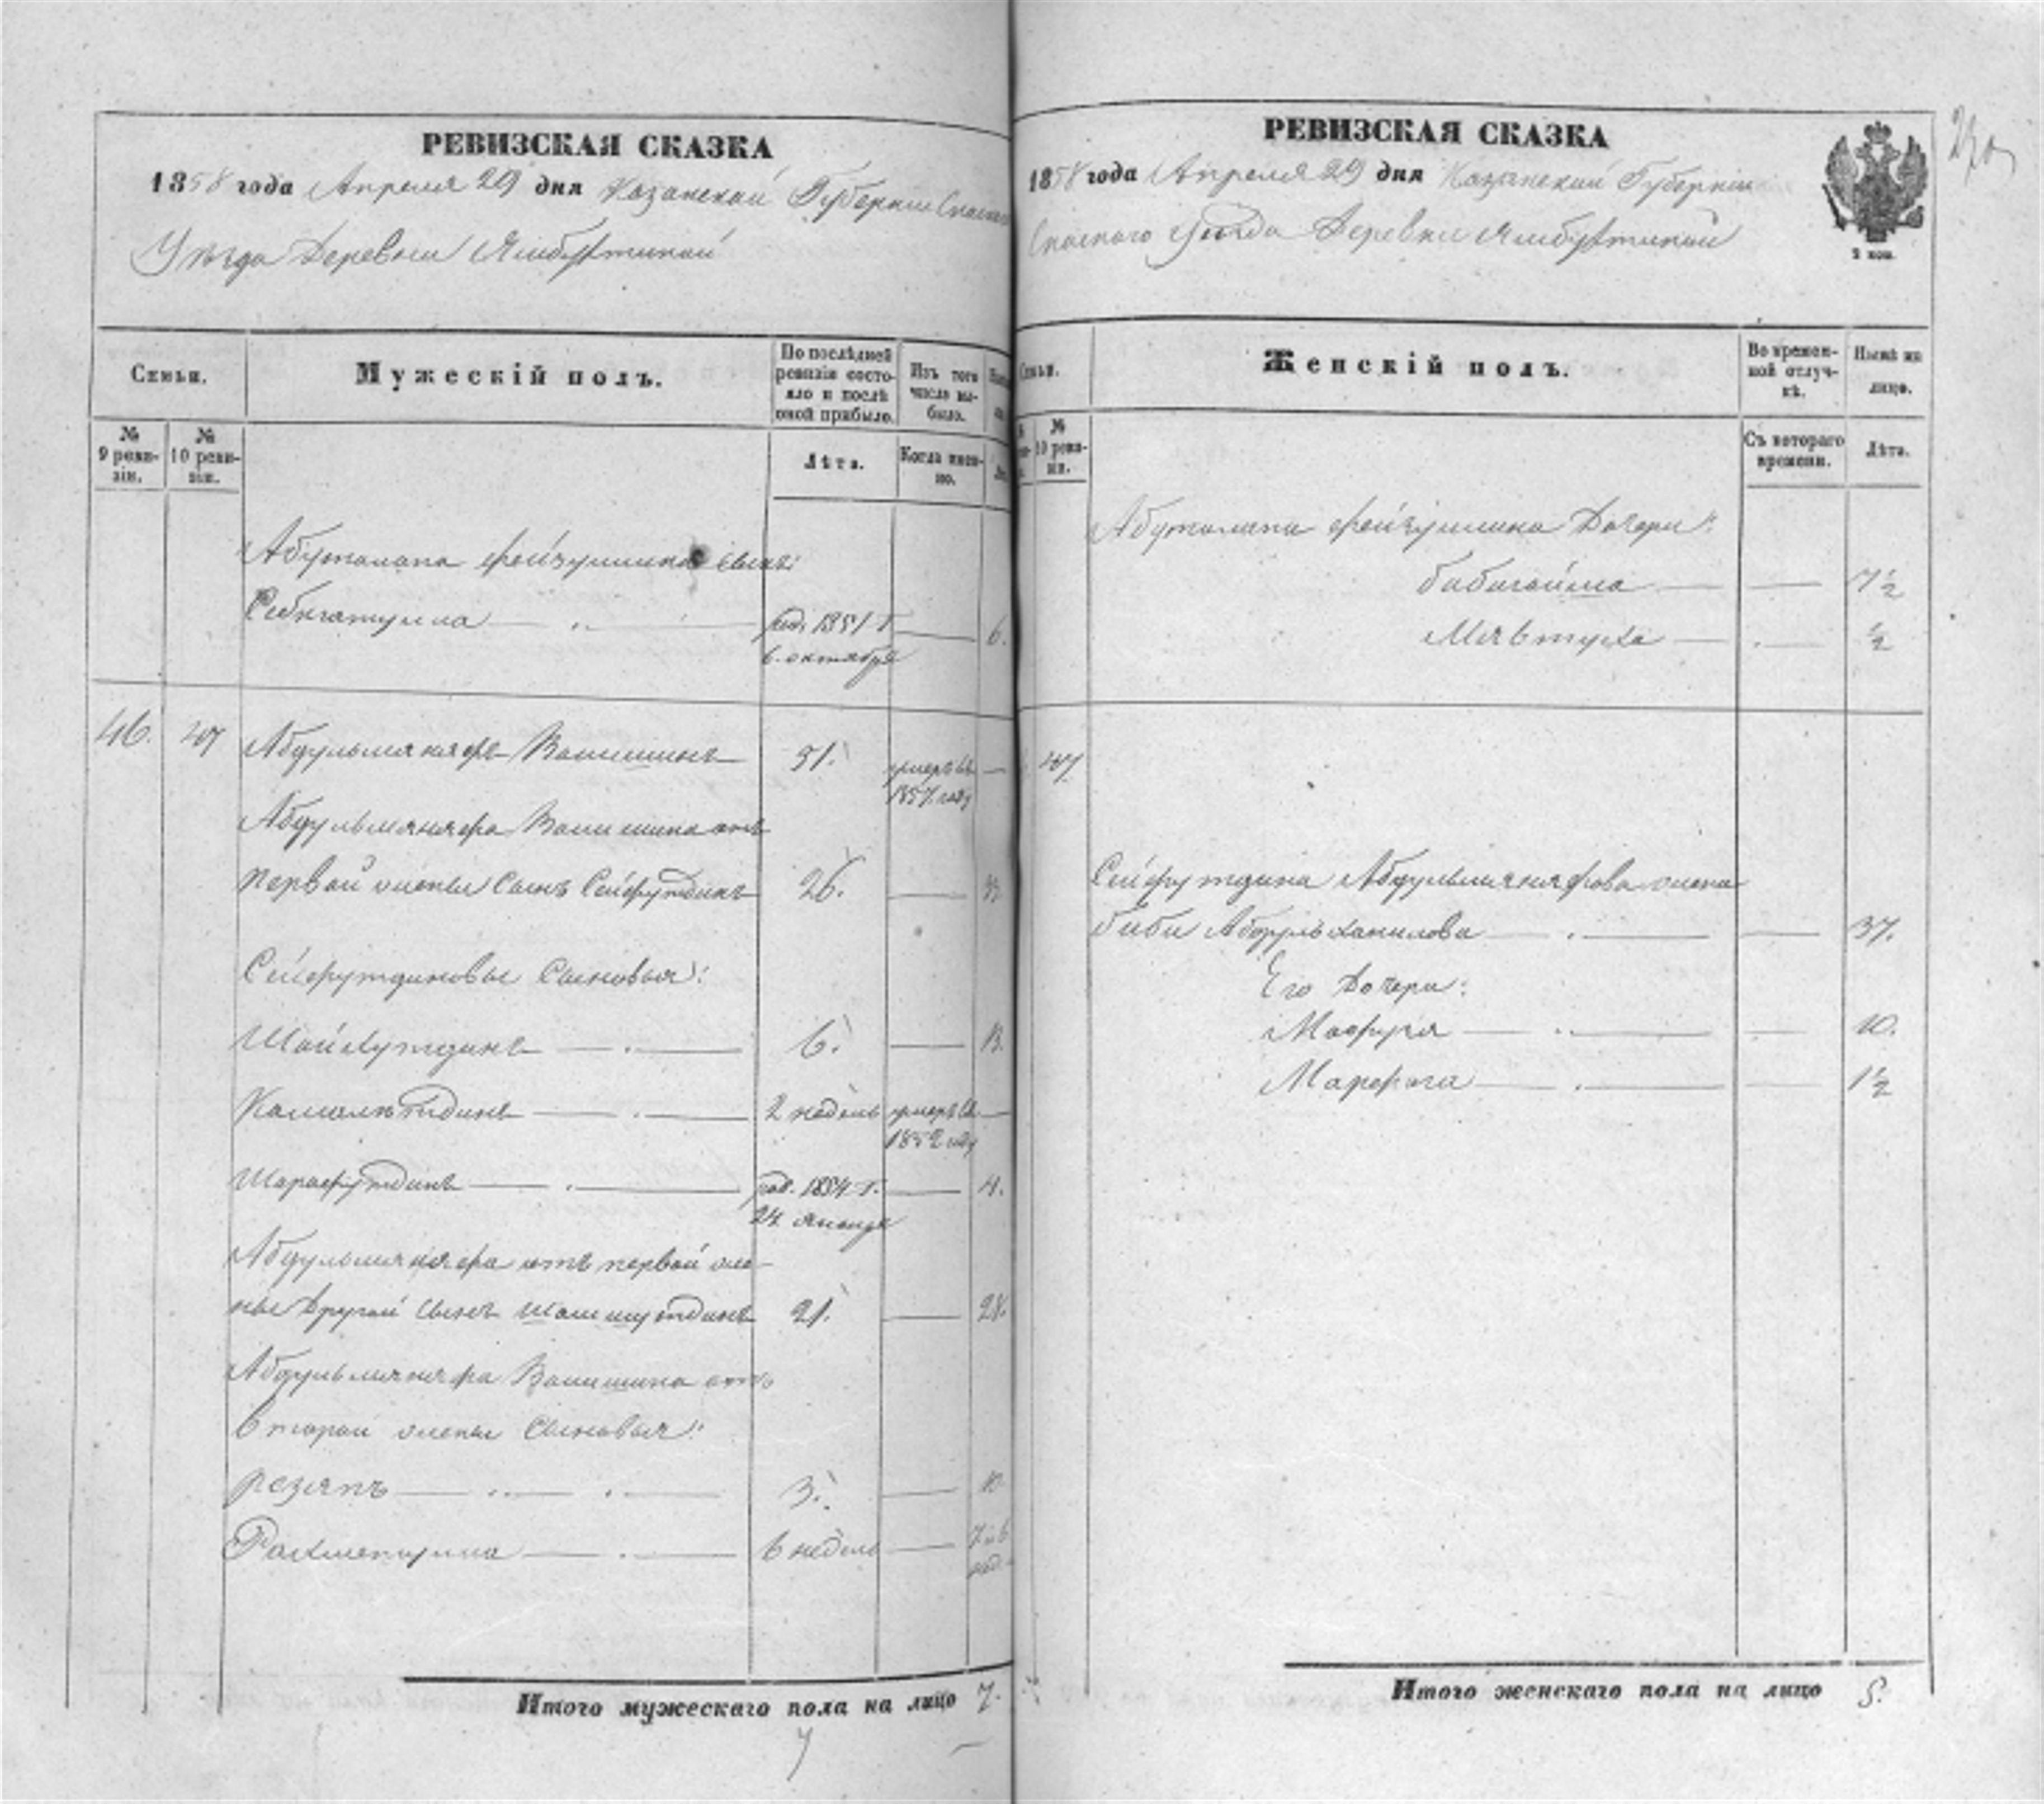 РЕВИЗСКАЯ СКАЗКА
1858 года Апреля 29 дня Казанской Губернии Спаскаго
Уѣзда Деревни Ямбухтиной
Семьи.
Мужескій полъ.
По послѣдней ревизіи состояло и послѣ оной прибыло.
Изъ того числа выбыло.
№ 9 ревизіи.
№ 10 ревизіи.
Лѣта.
Когда именно.
Абуталипа Фейзуллина сынъ:
Сибгатулла 6.
род. 1851 г
6. октября
46. 47 Абдульмяняфъ Валишинъ 51. умеръ въ
1857 году
Абдульмяняфа Валишина отъ
первой жены сынъ Сейфутдинъ 26. 33
Сейфутдиновы Сыновья:
Шайхутдинъ 6. 13.
Камалетдинъ 2 недѣль умеръ въ
1852 году
Шарафутдинъ род. 1854 г. 4.
24 января
Абдульмяняфа отъ первой же-
ны другой сынъ 21. 28.
Абдульмяняфа Валишина отъ
второй жены Сыновья:
Резяпъ 3. 10
Рахметулла 6 недѣль
Итого мужескаго пола на лицо 7.
7
РЕВИЗСКАЯ СКАЗКА
1858 года Апреля 29 дня Казанской Губерніи
Спаскаго Уезда Деревни Ямбухтиной
2 коп.
270
Семьи.
Женскій полъ.
Во временной отлучкѣ.
Нынѣ на лицо.
№ 10 ревизіи.
Съ котораго времени.
Лѣта.
Абуталипа Фейзуллина Дочери:
Бибигайша 7½
Мявтуха ½
47
Сейфутдина Абдульмяняфова жена
Биби Абдулхалилова 37.
Его Дочери:
Мафуря 10.
Марфуга 1½
Итого женскаго пола на лицо 5.